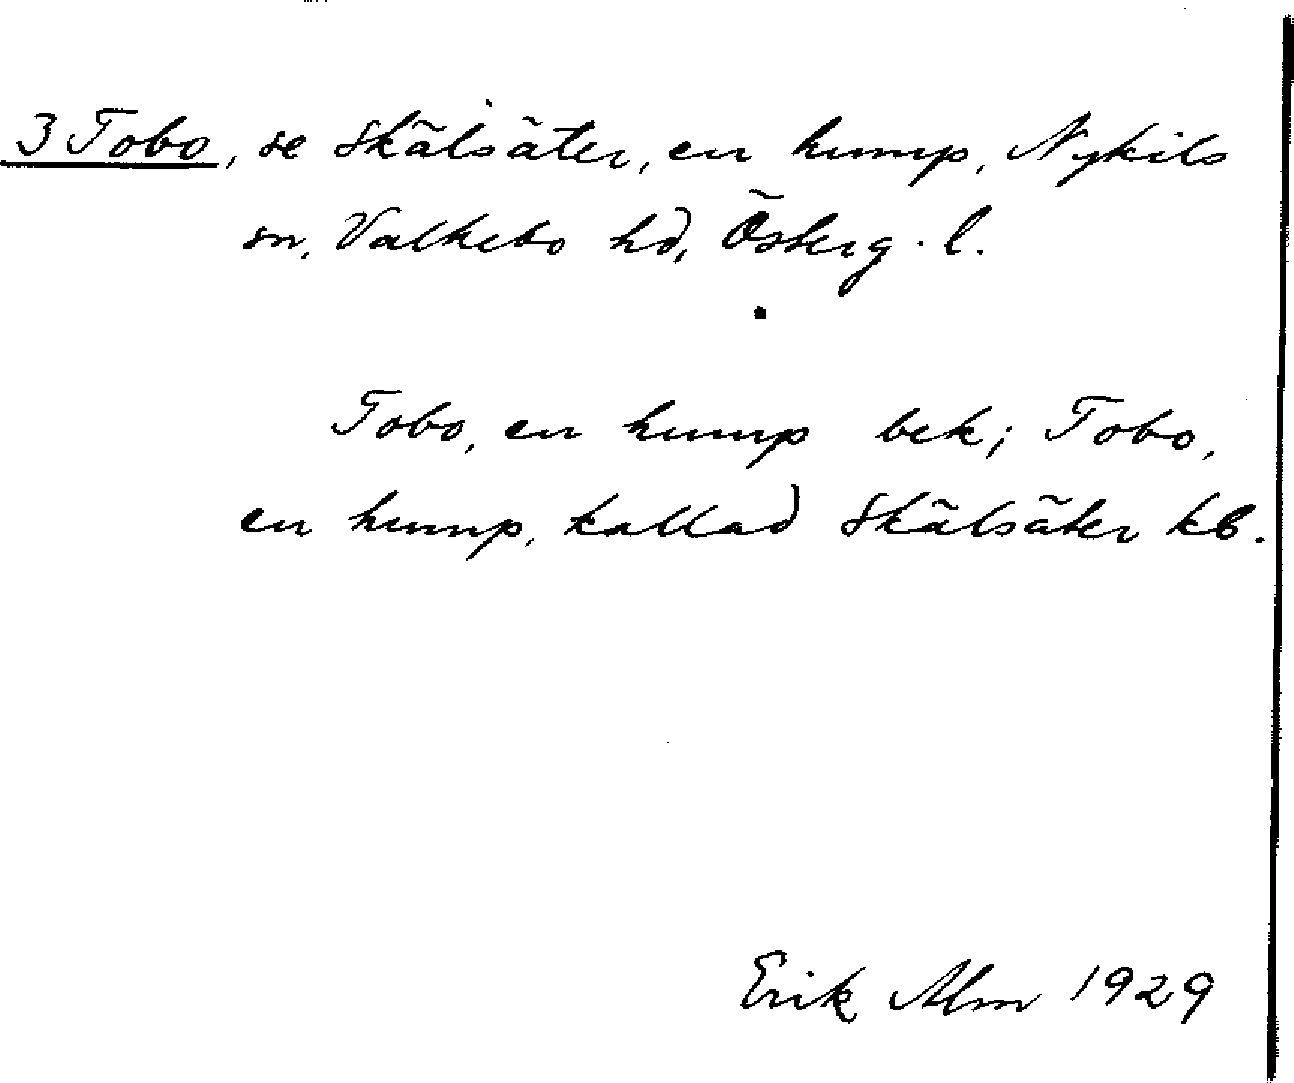 3 Tobo, se Skälsäter, en hump, Nykils
sn, Valkebo hd, Österg. l.
Tobo, en hump bek; Tobo,
en hump, kallad Skälsäter kb.
Erik Alm 1929